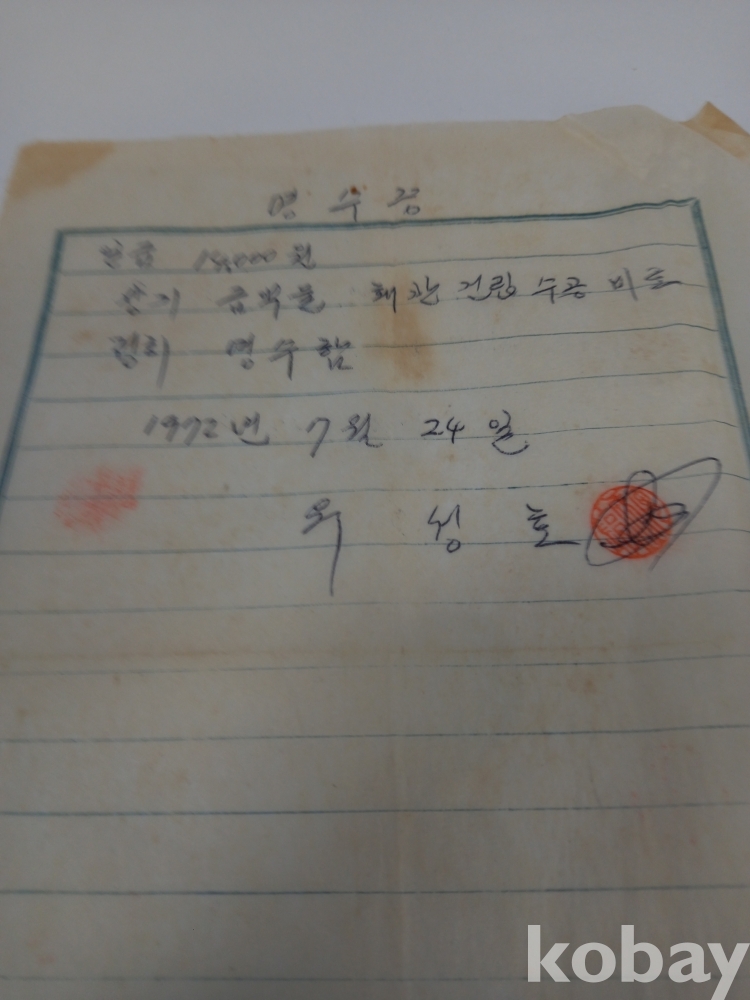 영수증
일금 18,000원
상기 금액을 회관 건립 수공 비로
정히 영수함
1972년 7월 24일
위 성 호
kobay